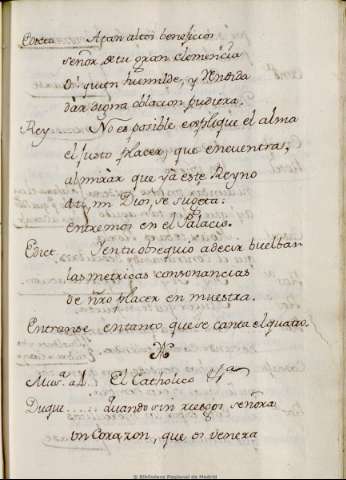 Edicta Atan altos beneficios
señor de tu gran clemencia
Quien humilde, y rendida
dar digna oblacion pudiera.
Rey No es posible explique el alma
el justo placer, que encuentras,
al mirar que ya este Reyno
a ti, mi Dios, se sugeta.
entremos en el Palacio.
Edict. Y en tu obsequio a decir buelban
las metricas consonancias
de nro placer en muestra.
Entranse entanto que se canta el quatro.
Mus.ª A 4 El Catholico &ª
Duque..... quando sin ruegos señora
un corazon, que os venera
© Biblioteca Regional de Madrid